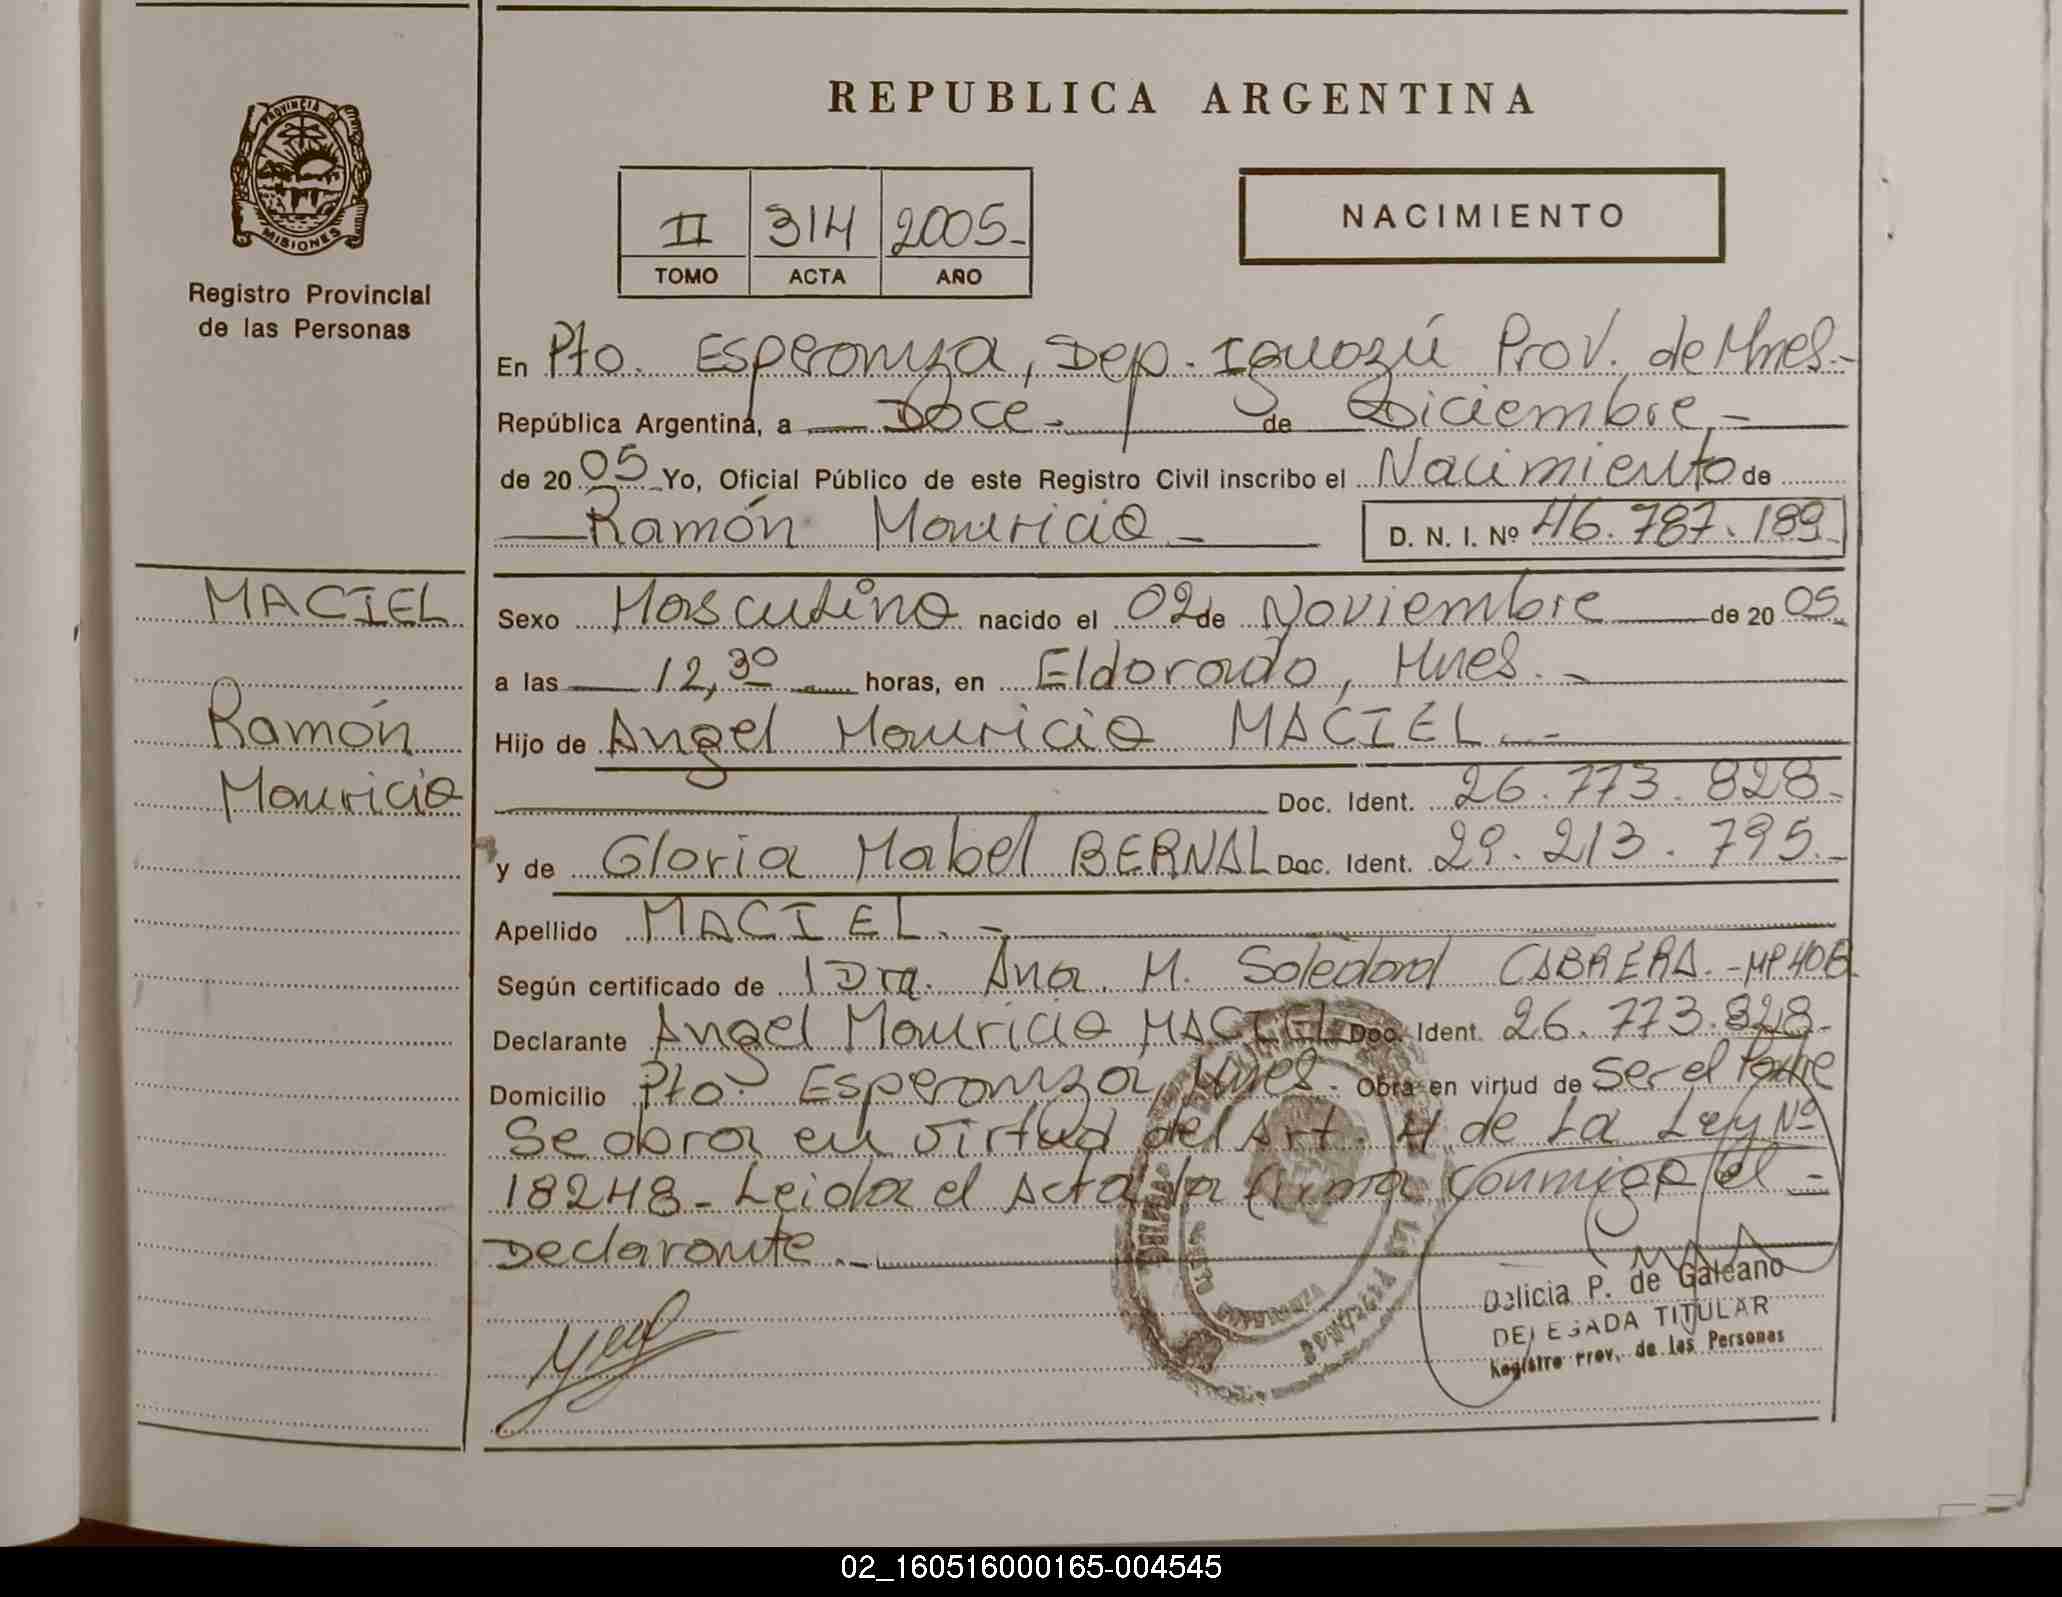 REPUBLICA ARGENTINA
PROVINCIA D
MISIONES
Registro Provincial
de las Personas
II 314 2005-
TOMO ACTA AÑO
NACIMIENTO
En Pto. Esperanza, Dep. Iguazú Prov. de Mnes.-
República Argentina, a Doce - de Diciembre -
de 2005 Yo, Oficial Público de este Registro Civil inscribo el Nacimiento de
Ramón Mauricio - D. N. I. Nº 46.787.189-
MACIEL
Ramón
Mauricio
Sexo Masculino nacido el 02 de Noviembre de 2005
a las 12,30 horas, en Eldorado, Mnes. -
Hijo de Angel Mauricio MACIEL. -
Doc. Ident. 26.773.828-
y de Gloria Mabel BERNAL Doc. Ident. 29.213.795.-
Apellido MACIEL. -
Según certificado de Dra. Ana M. Soledad CABRERA.-
Declarante Angel Mauricio MACIEL Doc. Ident. 26.773.828-
Domicilio Pto. Esperanza, Mnes. Obra en virtud de Ser el Padre
Se obra en virtud del Art. 4 de La Ley Nº
18248- Leida el Acta la firma conmigo el -
Declarante.-
Delicia P. de Galeano
DELEGADA TITULAR
Registro Prov. de las Personas
02_160516000165-004545